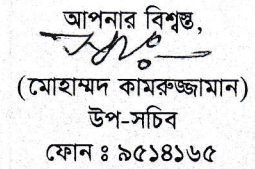 আপনার বিশ্বস্ত,
(মোহাম্মদ কামরুজ্জামান)
উপ-সচিব
ফোন ঃ ৯৫১৪১৬৫